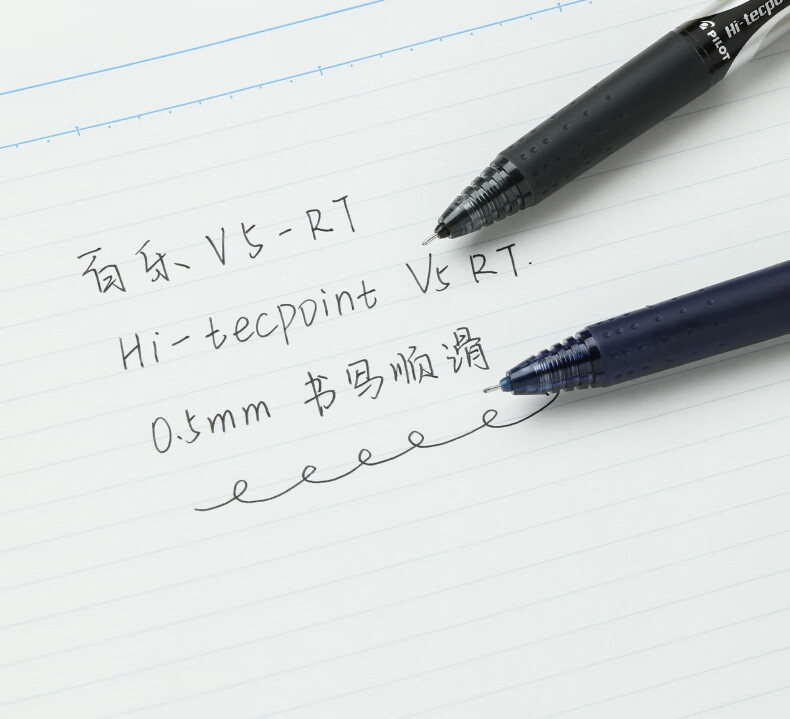 PILOT Hi-tecpo
百乐 V5-RT
Hi-tecpoint V5 RT.
0.5mm 书写顺滑